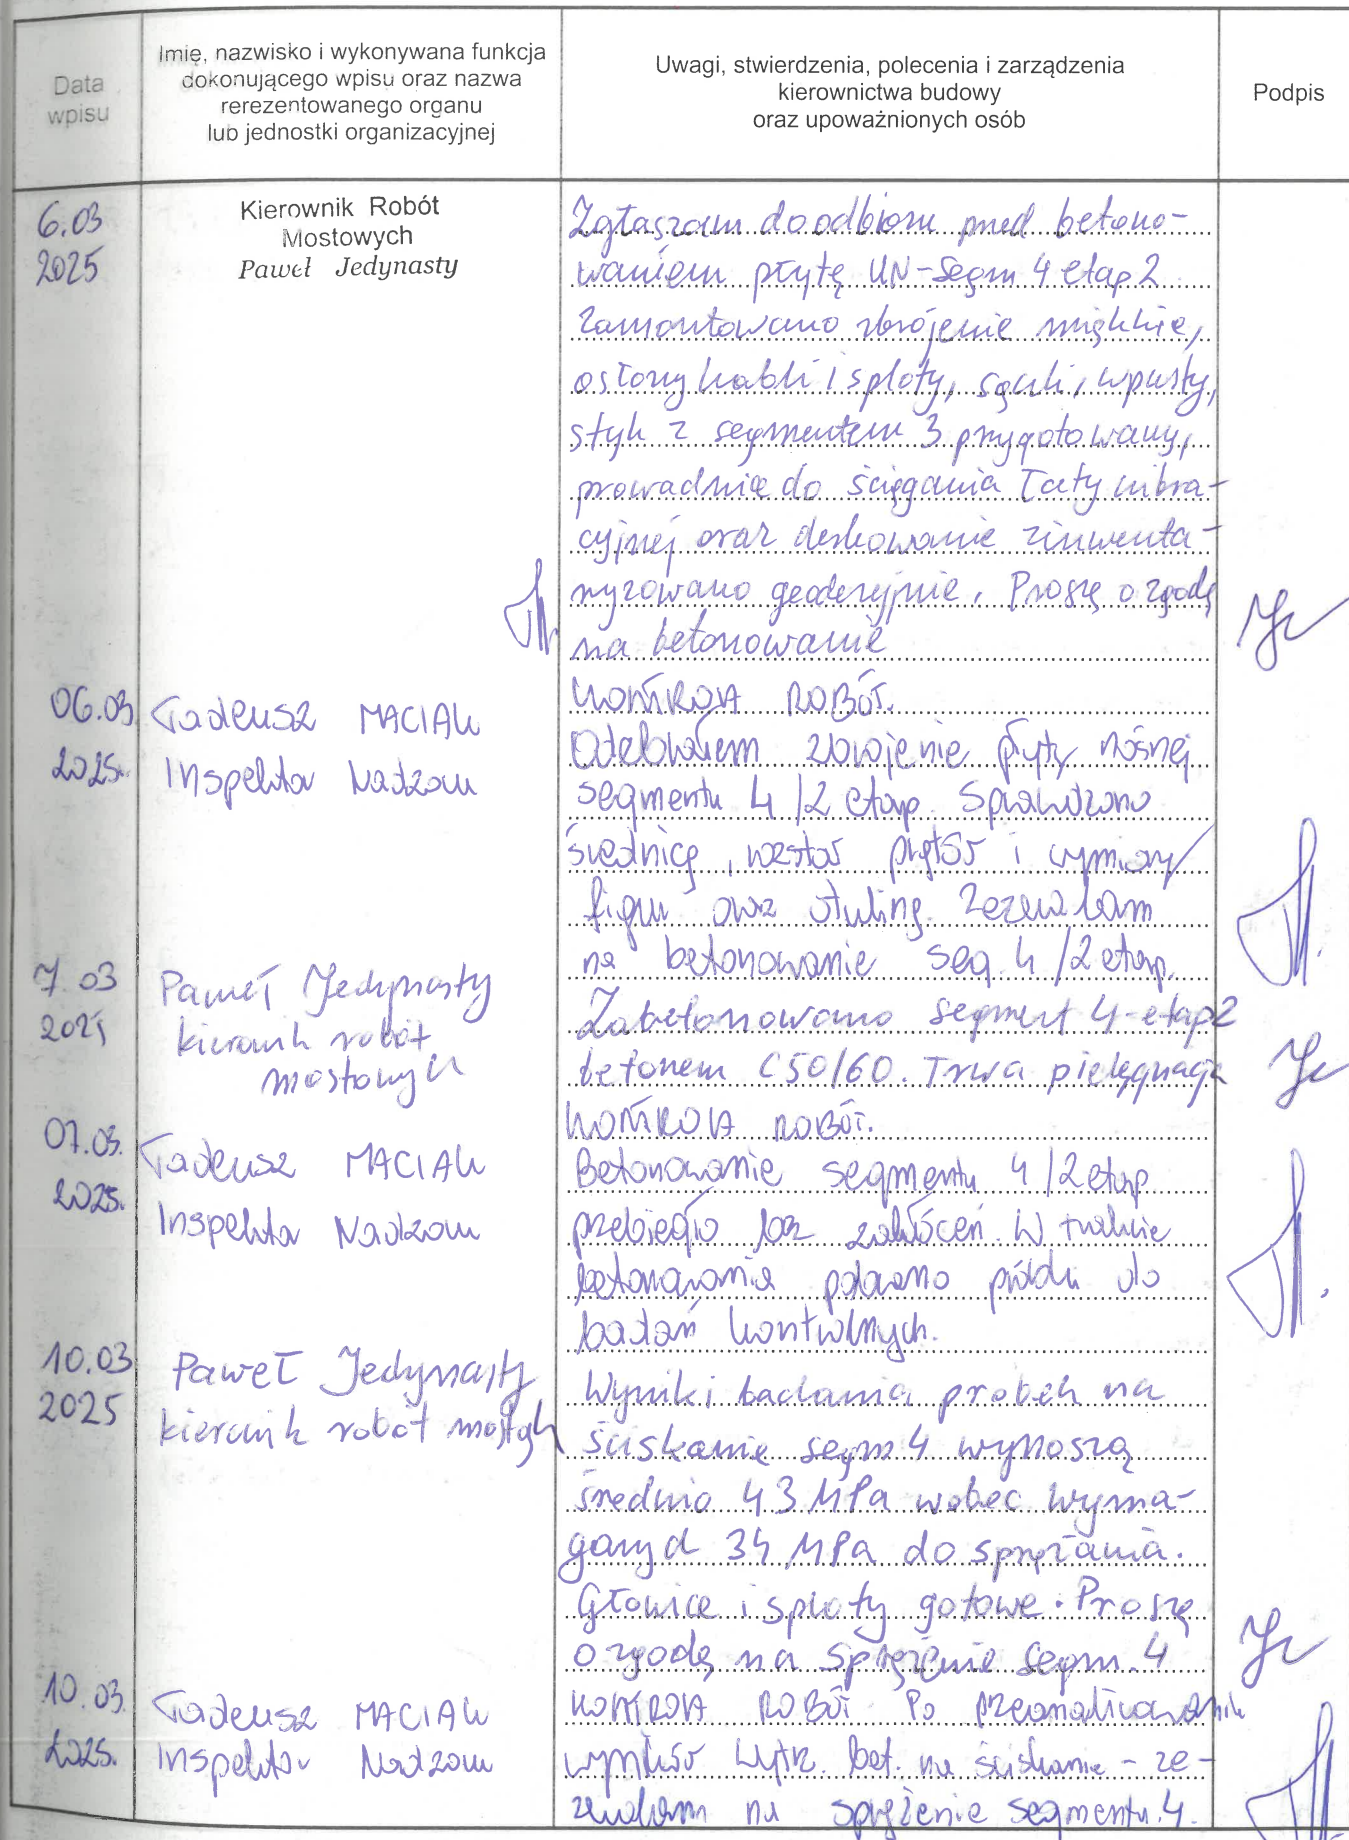 Data
wpisu
Imię, nazwisko i wykonywana funkcja
dokonującego wpisu oraz nazwa
rerezentowanego organu
lub jednostki organizacyjnej
Uwagi, stwierdzenia, polecenia i zarządzenia
kierownictwa budowy
oraz upoważnionych osób
Podpis
6.03
2025
Kierownik Robót
Mostowych
Paweł Jedynasty
Zgłaszam do odbioru przed betono-
waniem płytę UN-Segm 4 etap 2
Zamontowano zbrojenie miękkie,
osłony kabli i sploty, sączki, wpusty,
styk z segmentem 3 przygotowany,
prowadnice do ściągania łaty wibra-
cyjnej oraz deskowanie zinwenta-
ryzowano geodezyjnie. Proszę o zgodę
na betonowanie
06.03
2025.
Tadeusz MACIAK
Inspektor Nadzoru
KONTROLA ROBÓT.
Odebrałem zbrojenie płyty nośnej
segmentu 4/2 etap. Sprawdzono
średnicę, rozstaw prętów i wymiary
figur oraz otulinę. Zezwalam
na betonowanie seg. 4/2 etap.
7.03
2025
Paweł Jedynasty
kierownik robót
mostowych
Zabetonowano segment 4-etap 2
betonem C50/60. Trwa pielęgnacja
07.03.
2025.
Tadeusz MACIAK
Inspektor Nadzoru
KONTROLA ROBÓT.
Betonowanie segmentu 4/2 etap
przebiegło bez zakłóceń. W trakcie
betonowania pobrano próbki do
badań kontrolnych.
10.03
2025
Paweł Jedynasty
kierownik robót mostych
Wyniki badania próbek na
ściskanie segm 4 wynoszą
średnio 43 MPa wobec wyma-
ganych 34 MPa do sprężania.
Głowice i sploty gotowe. Proszę
o zgodę na sprężenie segm. 4
10.03.
2025.
Tadeusz MACIAK
Inspektor Nadzoru
KONTROLA ROBÓT Po przeanalizowaniu
wyników wytrz. bet. na ściskanie - ze-
zwalam na sprężenie segmentu 4.